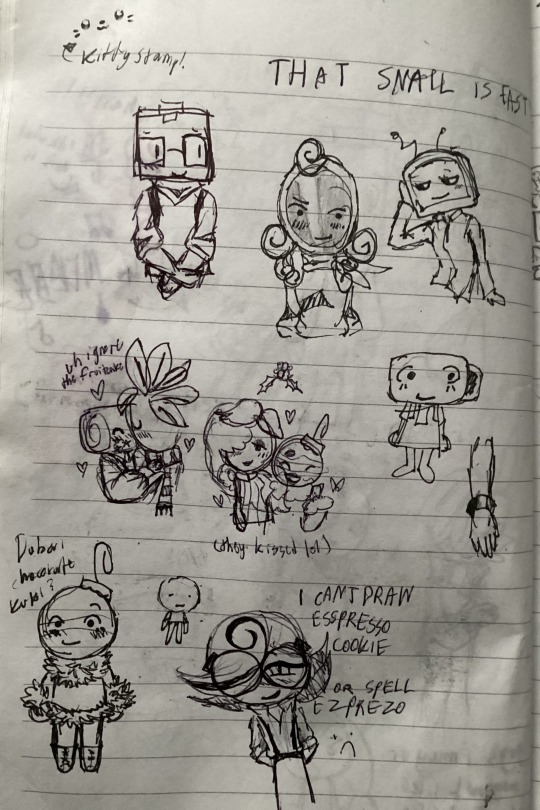 Kitty stamp!
THAT SNAIL IS FAST
uh ignore
the fruitcake
(they kissed lol)
Dubai
chocolate
I CANT DRAW
ESSPRESSO
COOKIE
OR SPELL
EZPREZO
:(